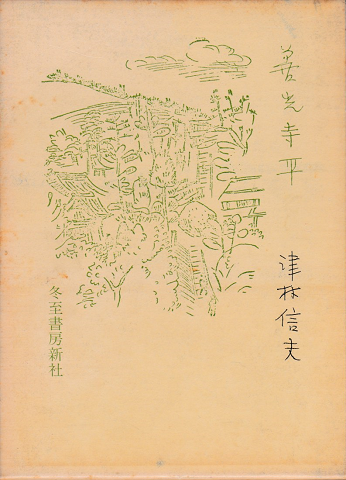 善光寺平
津村信夫
冬至書房新社